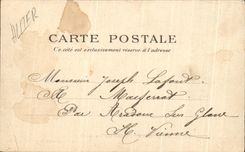 ALLIER
CARTE POSTALE
Ce côté est exclusivement réservé à l'adresse
Monsieur Joseph Lafont
A Masferrat
Par Oradour Sur Glane
H. Vienne